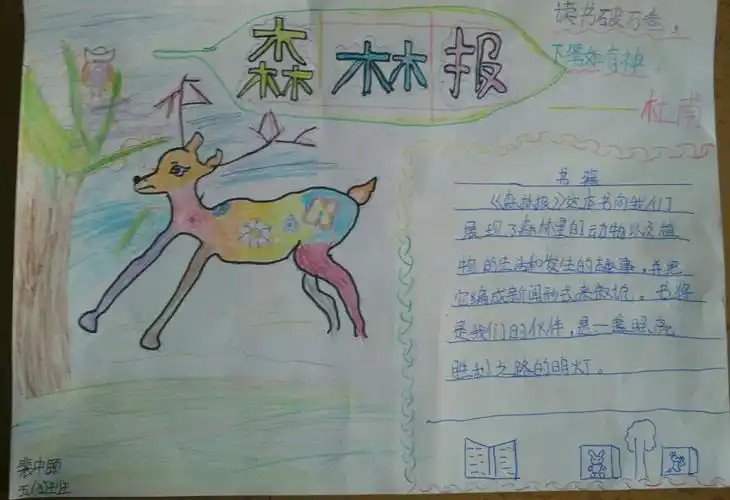 森林报
读书破万卷，
下笔如有神。
——杜甫
书籍
《森林报》这本书向我们
展现了森林里的动物以及植
物的生活和发生的故事，并把
它编成新闻形式来叙述。书将
是我们的伙伴，是一盏照亮
胜利之路的明灯。